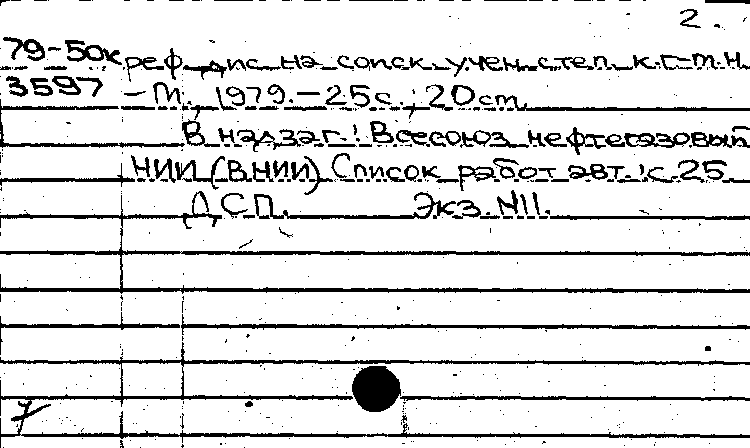 2.
79-50к реф. дис. на соиск. учен. степ. к.г-м.н.
3597 - М., 1979. - 25 с.; 20 см.
В надзаг.: Всесоюз. нефтегазовый
НИИ (ВНИИ). Список работ авт.: с. 25.
ДСП. Экз. №11.
7